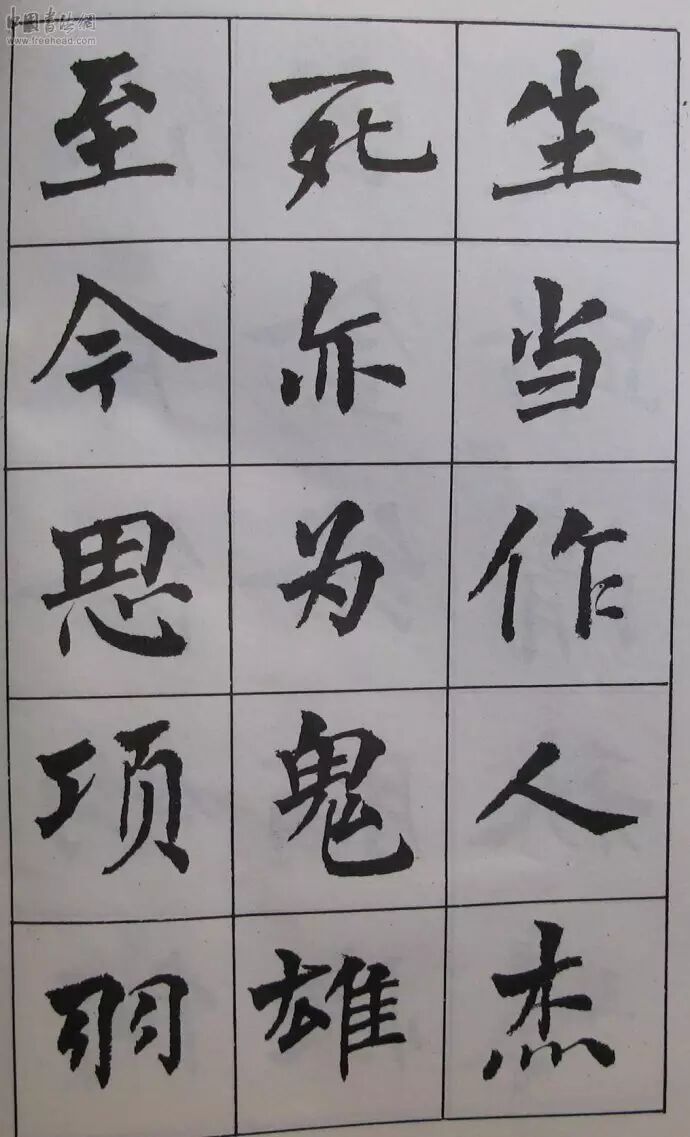 中国书法網
www.freehead.com
生当作人杰
死亦为鬼雄
至今思项羽